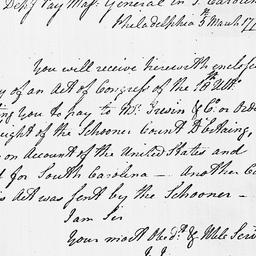 Dep.y Pay Mas. General in S. Carolin
Philadelphia 5th March 177
You will receive herewith enclose
y of an Act of Congress of the 18th Ult.
ing you to pay to Mr. Irwin & Co. or Orde
eight of the Schooner Count D'Estaing,
on Account of the United States and
d for South Carolina — Another Co
s Act was sent by the Schooner —
I am Sir
Your most Obed.t & Hble Serv